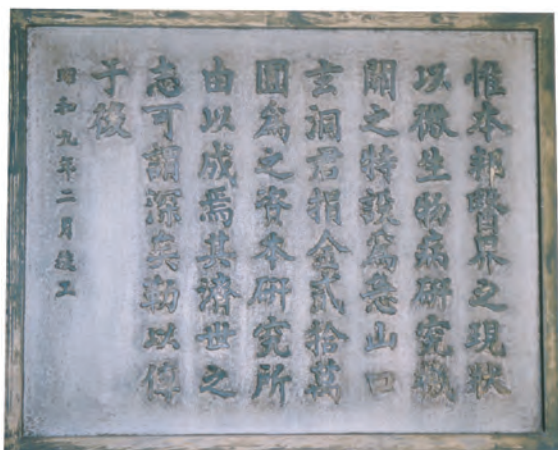 惟本邦醫界之現狀
以微生物病研究機
關之特設為急山口
玄洞君捐金貳拾萬
圓為之資本研究所
由以成焉其濟世之
志可謂深矣勒以傳
于後
昭和九年二月竣工